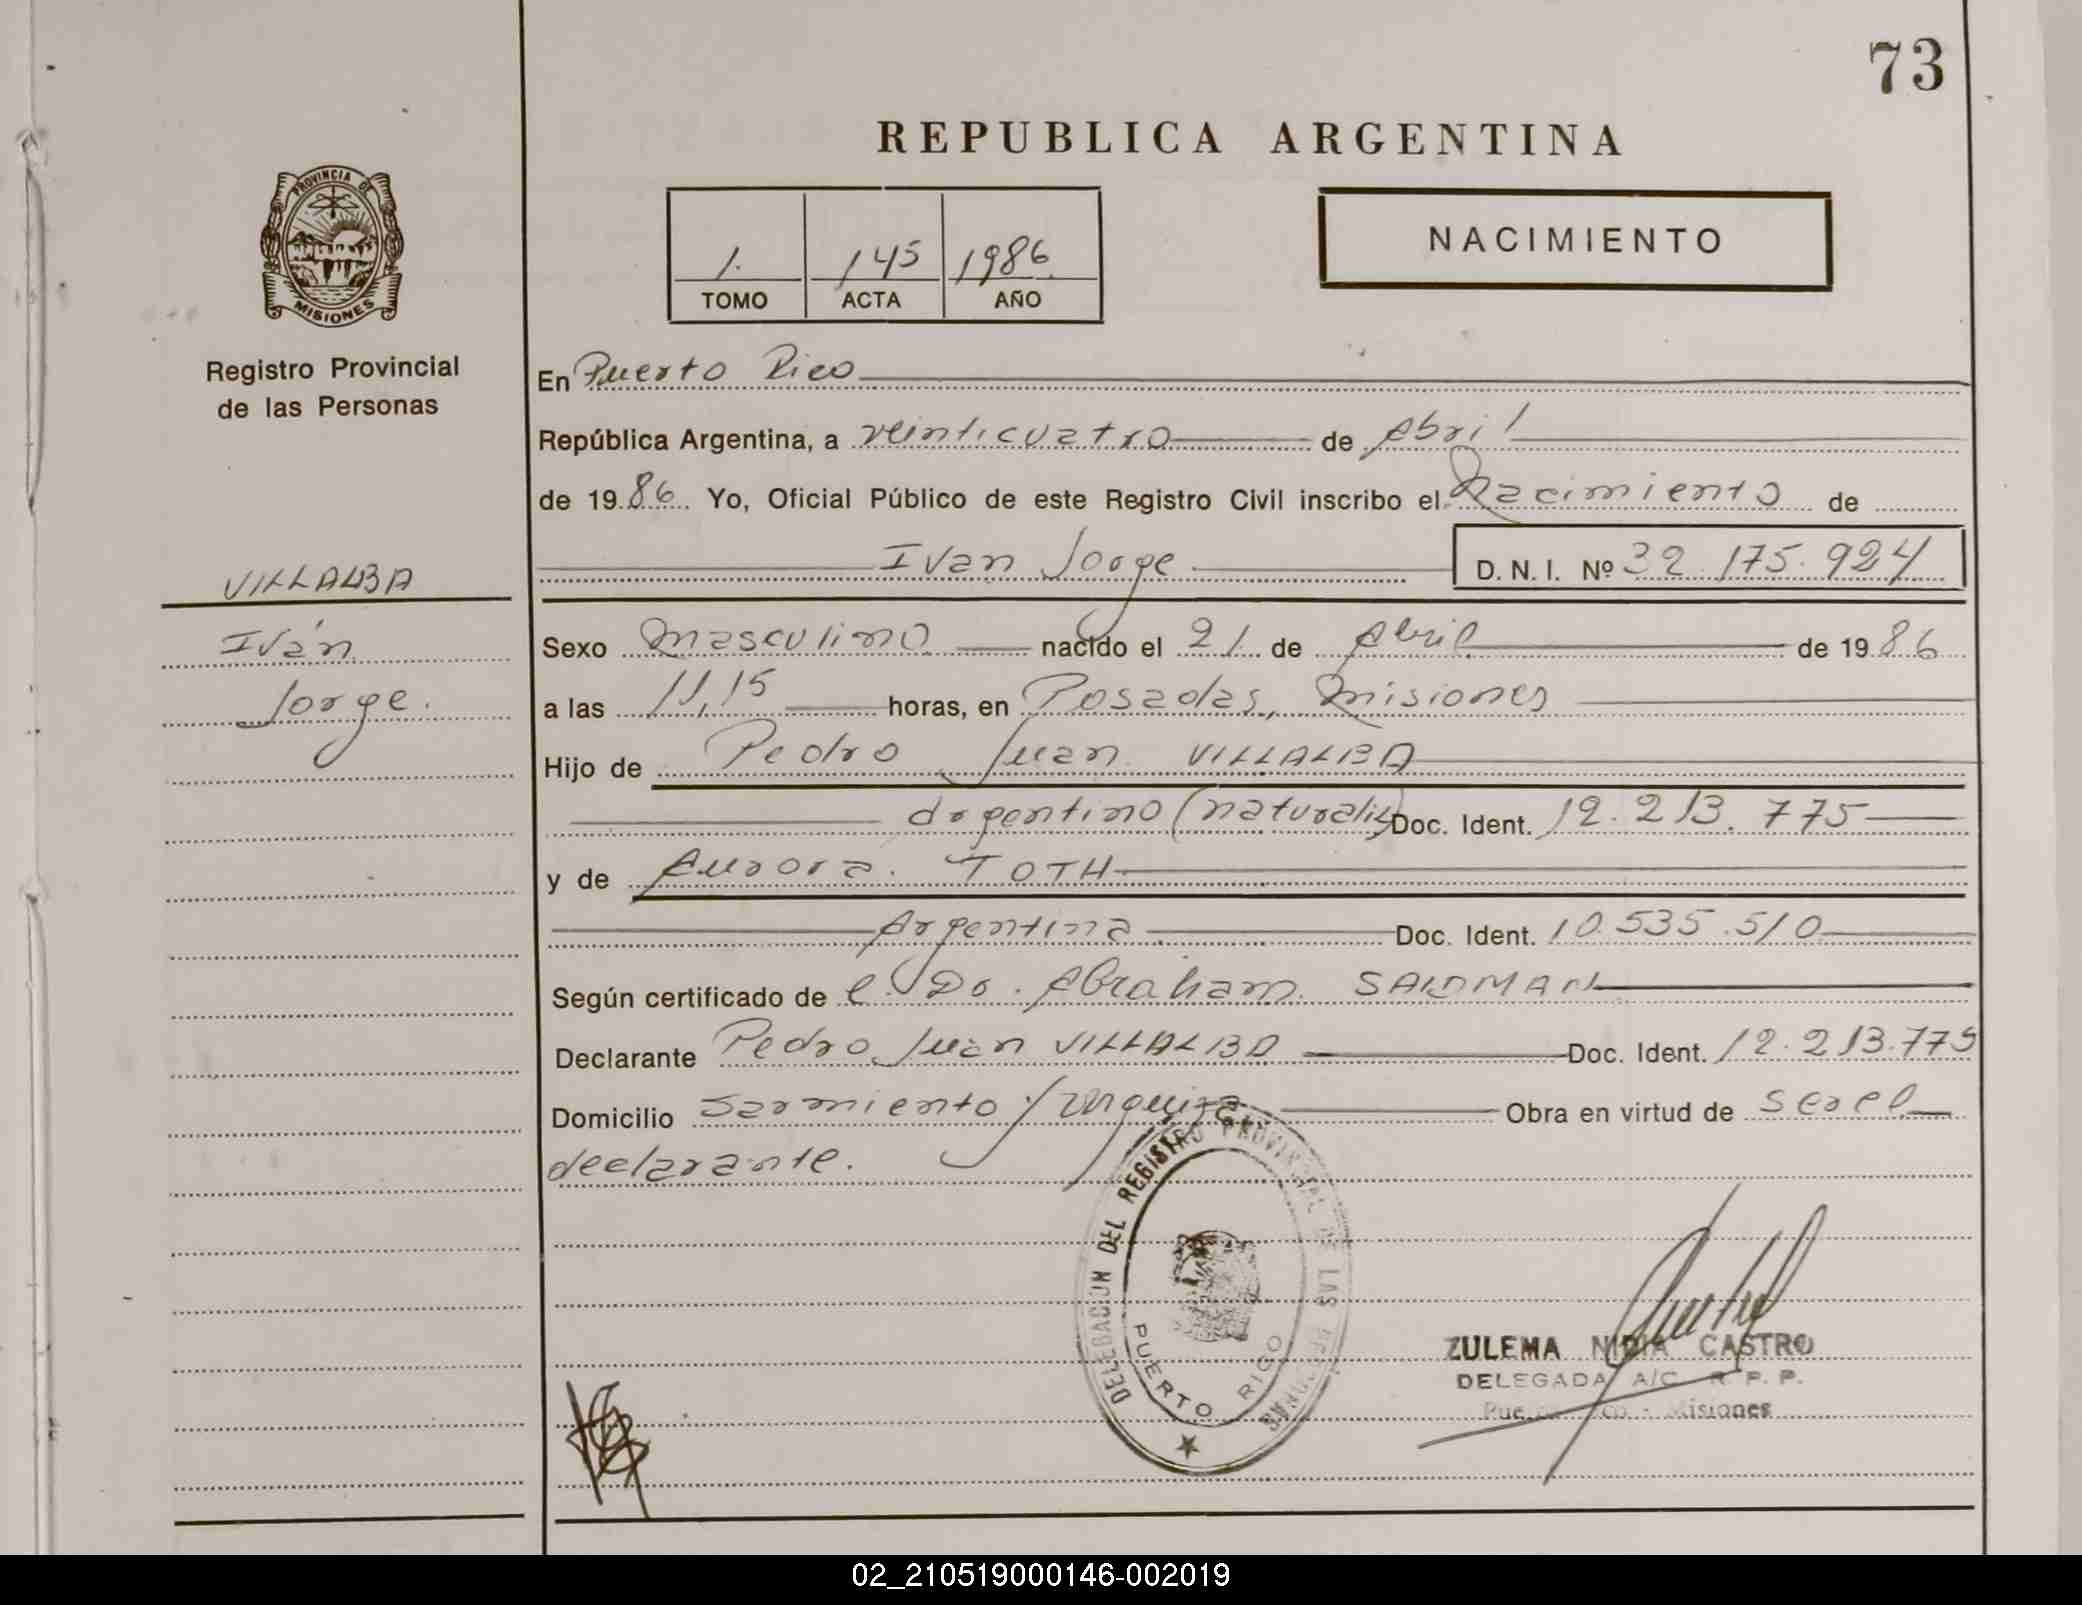 73
REPUBLICA ARGENTINA
PROVINCIA DE
MISIONES
Registro Provincial
de las Personas
1. 145 1986
TOMO ACTA AÑO
NACIMIENTO
En Puerto Rico
República Argentina, a veinticuatro de Abril
de 1986. Yo, Oficial Público de este Registro Civil inscribo el Nacimiento de
Ivan Jorge D. N. I. Nº 32.175.924
VILLALBA
Iván
Jorge.
Sexo masculino nacido el 21 de Abril de 1986
a las 11,15 horas, en Posadas, Misiones
Hijo de Pedro Juan VILLALBA
Argentino (naturaliz) Doc. Ident. 12.213.775
y de Aurora TOTH
Argentina Doc. Ident. 10.535.510
Según certificado de el Dr. Abraham
Declarante Pedro Juan VILLALBA Doc. Ident. 12.213.775
Domicilio Sarmiento y Urquiza Obra en virtud de ser el
declarante.
DELEGACION DEL REGISTRO PROVINCIAL DE LAS PERSONAS
PUERTO RICO
ZULEMA NIDIA CASTRO
DELEGADA A/C R. P. P.
Puerto Rico - Misiones
02_210519000146-002019